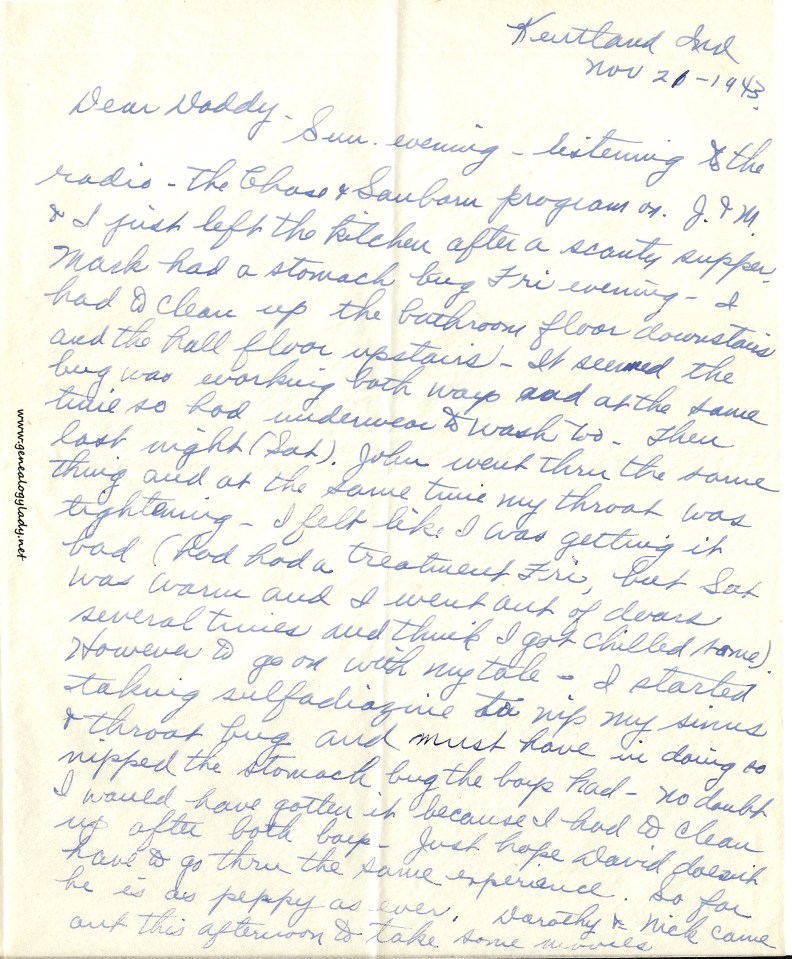 Kentland Ind
Nov 21-1943.
Dear Daddy-
Sun. evening - listening to the
radio - the Chase & Sanborn program on. J. & M.
& I just left the kitchen after a scanty supper.
Mark had a stomach bug Fri evening - I
had to clean up the bathroom floor downstairs
and the hall floor upstairs - It seemed the
bug was working both ways and at the same
time so had underwear to wash too - Then
last night (Sat). John went thru the same
thing and at the same time my throat was
tightening - I felt like I was getting it
bad (had had a treatment Fri, but Sat
was warm and I went out of doors
several times and think I got chilled some).
However to go on with my tale - I started
taking sulfadiazine to nip my sinus
& throat bug and must have in doing so
nipped the stomach bug the boys had - no doubt
I would have gotten it because I had to clean
up after both boys - Just hope David doesn't
have to go thru the same experience. So far
he is as peppy as ever. Dorothy & Nick came
out this afternoon to take some movies
www.genealogylady.net